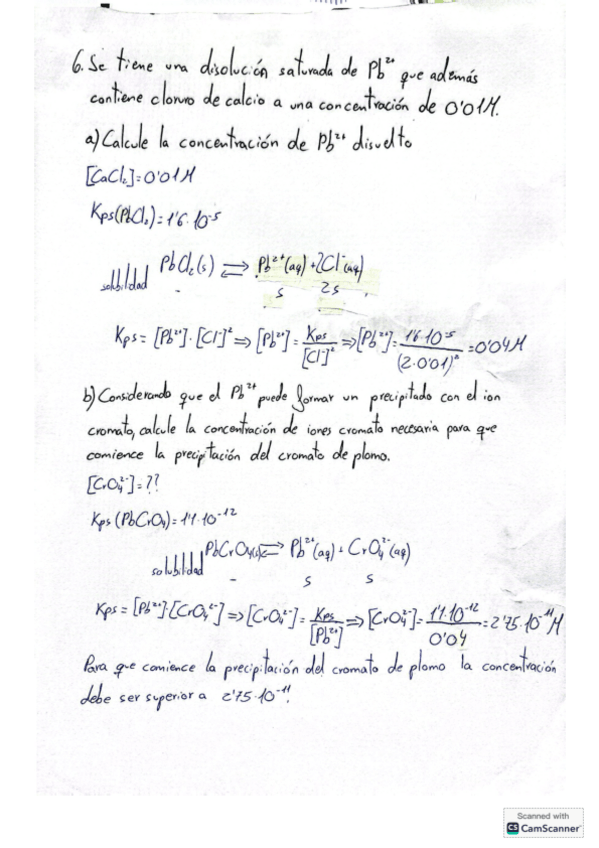 6. Se tiene una disolución saturada de Pb²⁺ que además
contiene cloruro de calcio a una concentración de 0'01M.
a) Calcule la concentración de Pb²⁺ disuelto
[CaCl₂]=0'01M
Kps(PbCl₂)=1'6·10⁻⁵
PbCl₂(s) ⇌ Pb²⁺(aq)+2Cl⁻(aq)
solubilidad - s 2s
Kps=[Pb²⁺]·[Cl⁻]² ⇒ [Pb²⁺]=Kps/[Cl⁻]² ⇒ [Pb²⁺]=1'6·10⁻⁵/(2·0'01)²=0'04M
b) Considerando que el Pb²⁺ puede formar un precipitado con el ion
cromato, calcule la concentración de iones cromato necesaria para que
comience la precipitación del cromato de plomo.
[CrO₄²⁻]=??
Kps(PbCrO₄)=1'1·10⁻¹²
PbCrO₄(s) ⇌ Pb²⁺(aq)+CrO₄²⁻(aq)
solubilidad - s s
Kps=[Pb²⁺]·[CrO₄²⁻] ⇒ [CrO₄²⁻]=Kps/[Pb²⁺] ⇒ [CrO₄²⁻]=1'1·10⁻¹²/0'04=2'75·10⁻¹¹M
Para que comience la precipitación del cromato de plomo la concentración
debe ser superior a 2'75·10⁻¹¹.
Scanned with
CS CamScanner